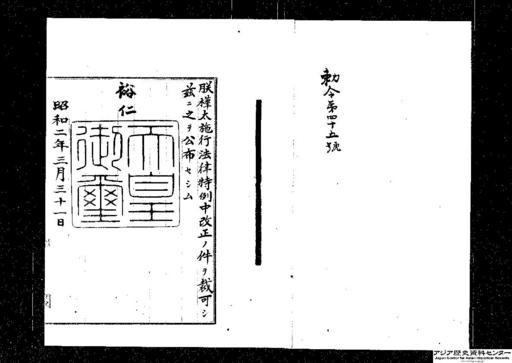 勅令第四十五號
朕樺太施行法律特例中改正ノ件ヲ裁可シ
茲ニ之ヲ公布セシム
裕仁
天皇御璽
昭和二年三月三十一日
アジア歴史資料センター
Japan Center for Asian Historical Records